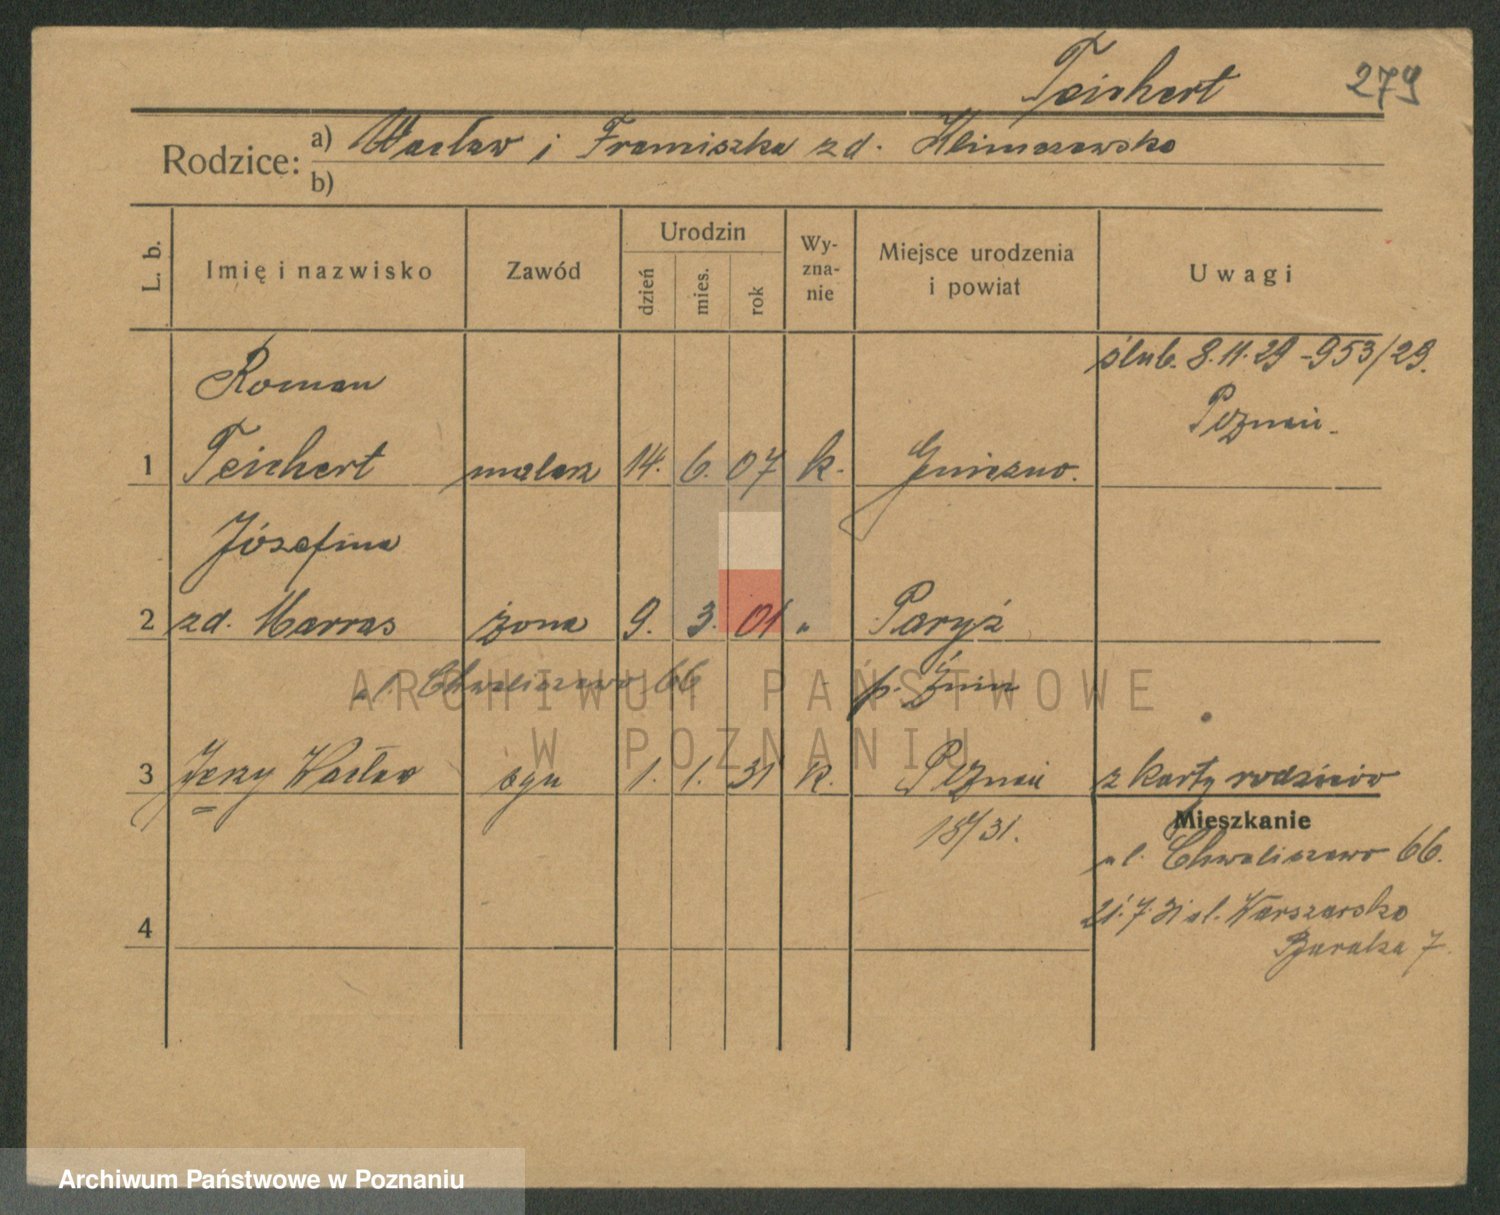 Teichert 279
Rodzice: a) Wacław i Franciszka zd. Klimczewska
b)
L. b. Imię i nazwisko Zawód Urodzin dzień mies. rok Wy-zna-nie Miejsce urodzenia i powiat Uwagi
ślub. 8.11.29 - 953/29.
Roman
Poznań
1 Teichert malarz 14. 6. 07 k. Gniezno.
Józefina
2 zd. Marras żona 9. 3. 01 " Paryż
ul. Chwaliszewo 66 p. Żnin
ARCHIWUM PAŃSTWOWE
W POZNANIU
3 Jerzy Wacław syn 1. 1. 31 k. Poznań z karty rodziców
Mieszkanie
ul. Chwaliszewo 66.
21.7.31 ul. Warszawska
4
Archiwum Państwowe w Poznaniu